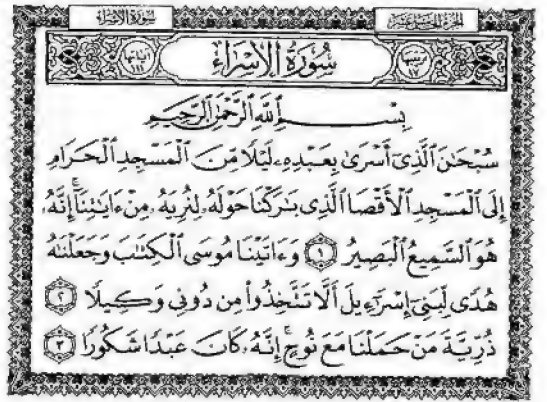 سُورَةُ الإِسْرَاءِ الجُزءُ الخَامِسَ عَشَرَ
آيَاتُهَا ١١١ سُورَةُ الإِسْرَاءِ تَرْتِيبُهَا ١٧
بِسْمِ ٱللَّهِ ٱلرَّحْمَٰنِ ٱلرَّحِيمِ
سُبْحَٰنَ ٱلَّذِىٓ أَسْرَىٰ بِعَبْدِهِۦ لَيْلًا مِّنَ ٱلْمَسْجِدِ ٱلْحَرَامِ
إِلَى ٱلْمَسْجِدِ ٱلْأَقْصَا ٱلَّذِى بَٰرَكْنَا حَوْلَهُۥ لِنُرِيَهُۥ مِنْ ءَايَٰتِنَآ ۚ إِنَّهُۥ
هُوَ ٱلسَّمِيعُ ٱلْبَصِيرُ ١ وَءَاتَيْنَا مُوسَى ٱلْكِتَٰبَ وَجَعَلْنَٰهُ
هُدًى لِّبَنِىٓ إِسْرَٰٓءِيلَ أَلَّا تَتَّخِذُوا۟ مِن دُونِى وَكِيلًا ٢
ذُرِّيَّةَ مَنْ حَمَلْنَا مَعَ نُوحٍ ۚ إِنَّهُۥ كَانَ عَبْدًا شَكُورًا ٣